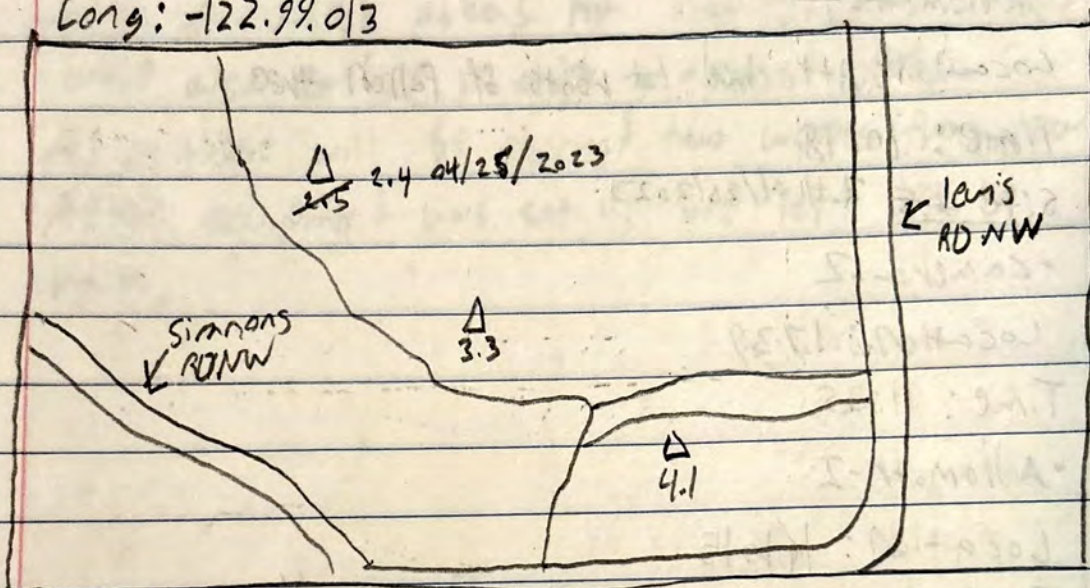 Long: -122.99.013
2.4 04/25/2023
2.5
lewis
RD NW
Simmons
RD NW
3.3
4.1